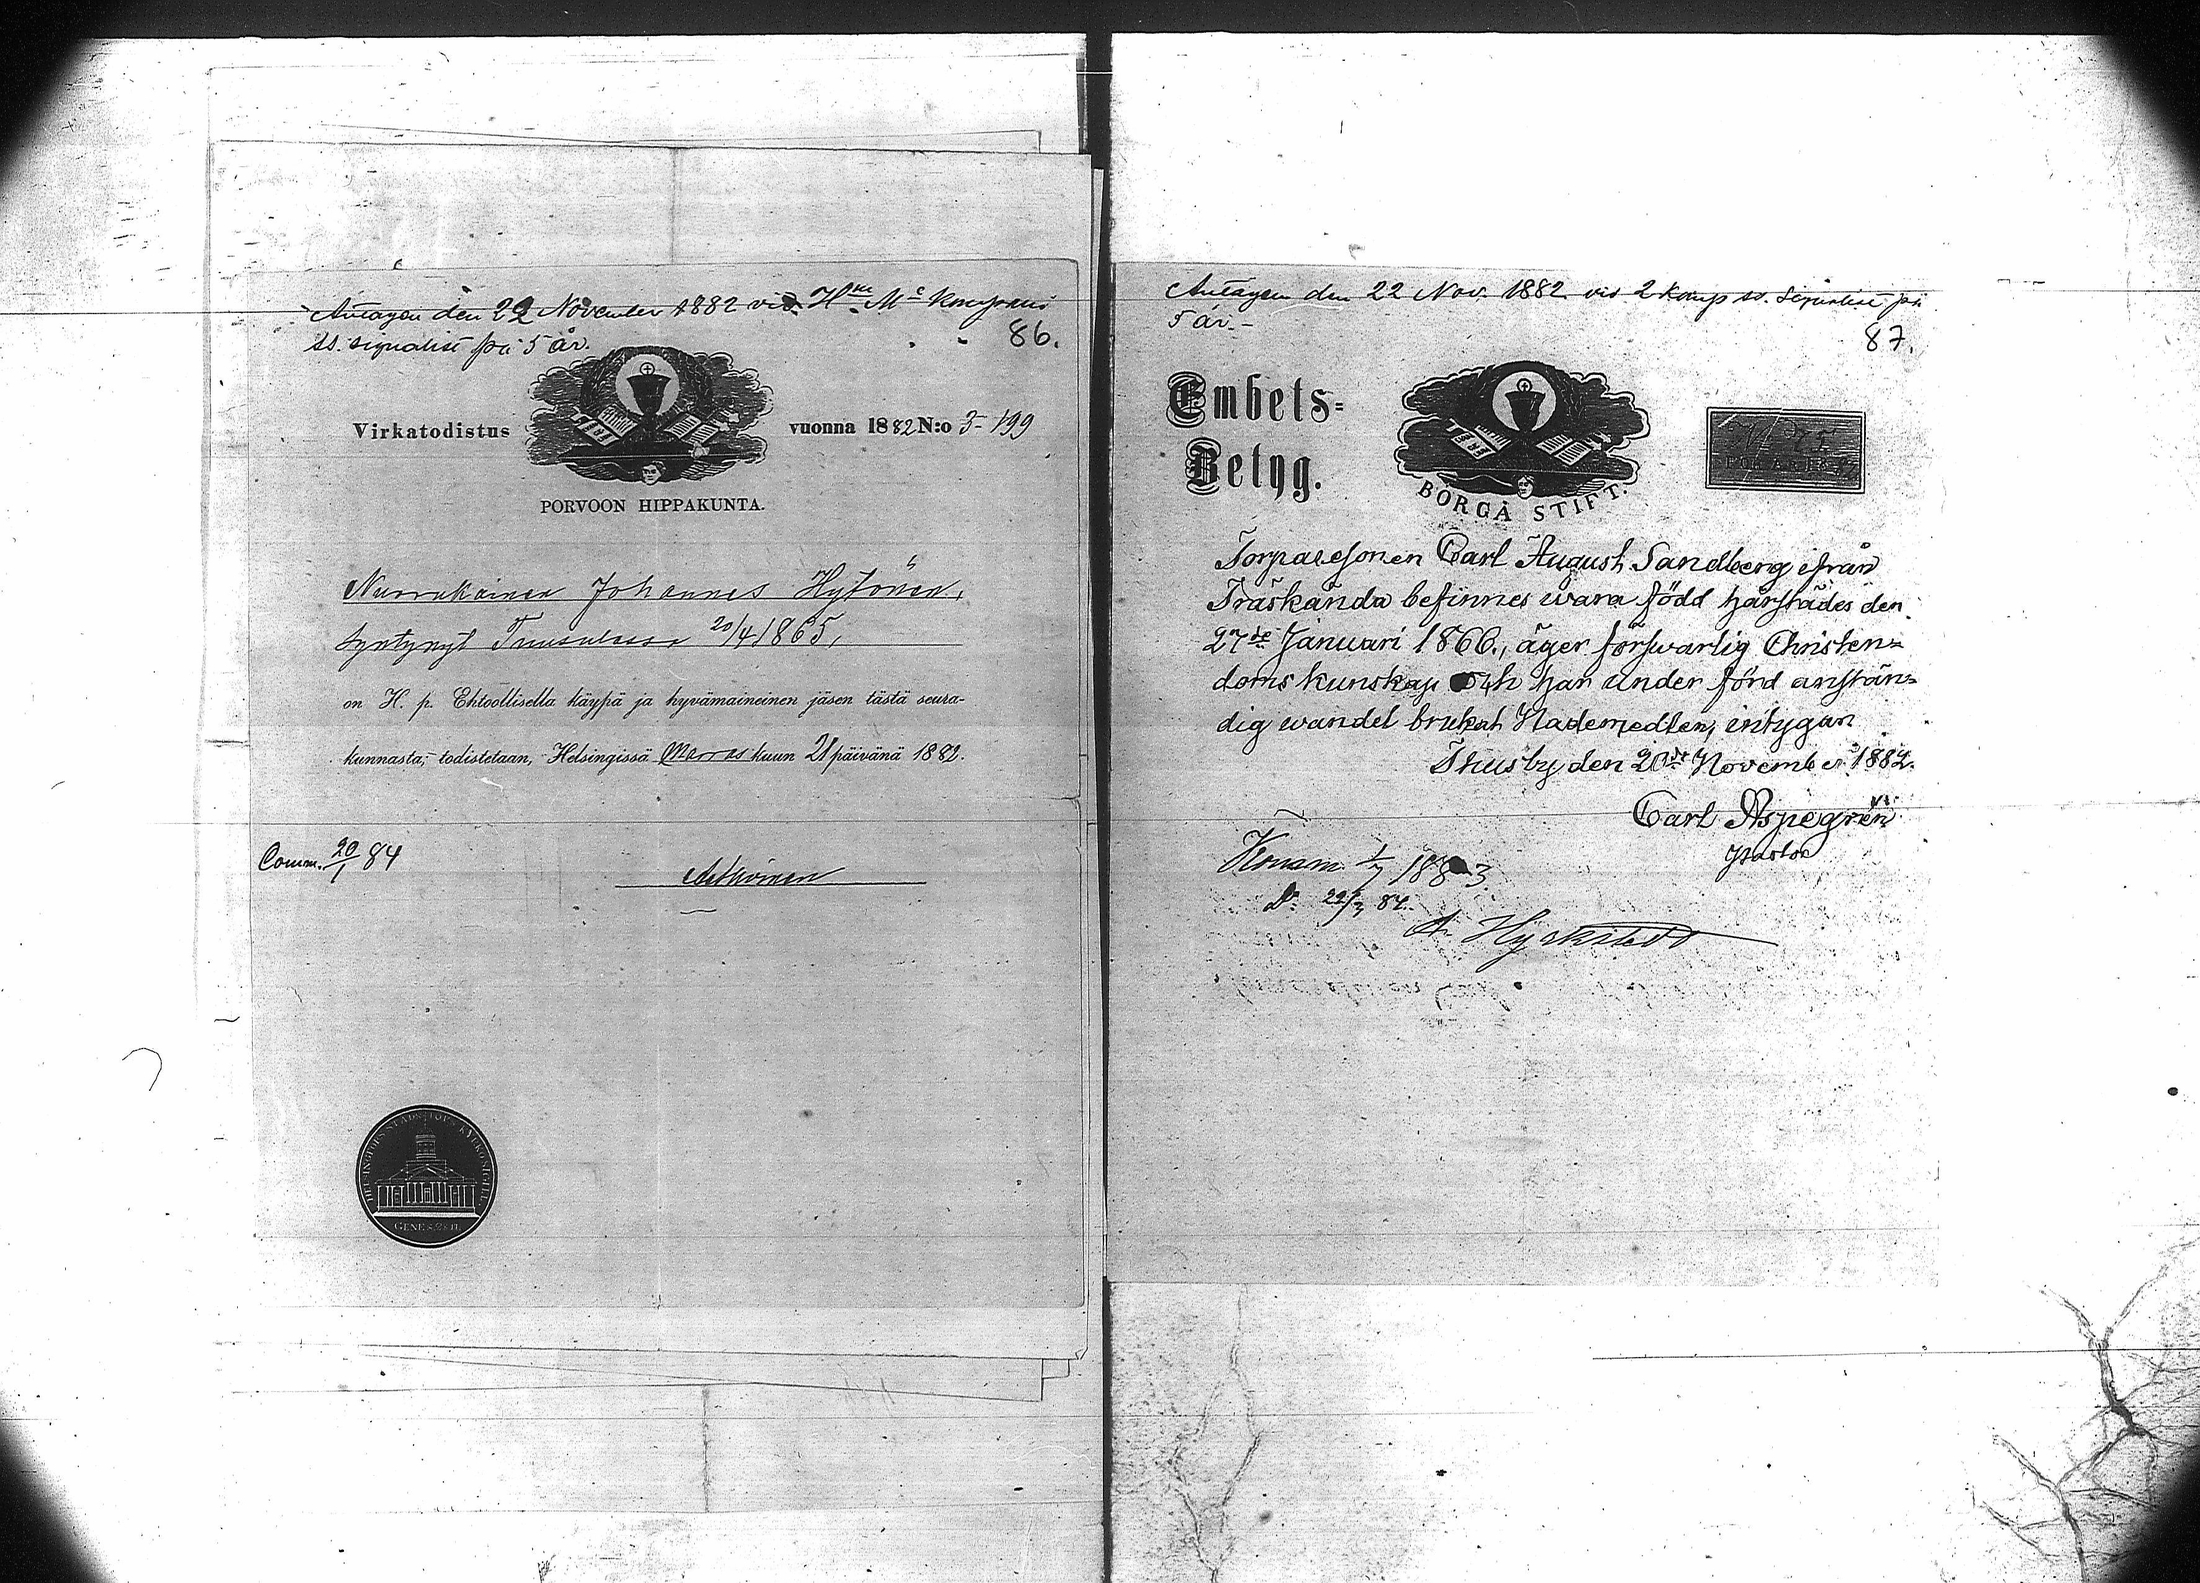 Antagen den 22 November 1882 vid H:ns M:s Kompani
ss. signalist på 5 år.
86.
Virkatodistus
vuonna 1882 N:o 3-199
PORVOON HIPPAKUNTA.
Nuorukainen Johannes Hytönen,
syntynyt Tuusulassa 20/4 1865,
on H. p. Ehtoollisella käypä ja hyvämaineinen jäsen tästä seura-
kunnasta, todistetaan, Helsingissä Marras kuun 21 päivänä 1882.
Comm. 20/1 84
HELSINGFORS STADS
GENES. 28.17.
Antagen den 22 Nov. 1882 vid 2 komp ss. Signalist på
5 år.-
87.
Embets-
Betyg.
BORGÅ STIFT.
FÖR ÅR 1882
Torparesonen Carl August Sandberg ifrån
Träskända befinnes wara född härstädes den
27de Januari 1866., äger förswarlig Christen-
doms kunskap och har under förd anstän-
dig wandel brukat Nademedlen, intygar
Thusby den 20de November 1882.
Carl Aspegrén
Pastor
Komm. 1/7 1883
D:o 22/2 84.